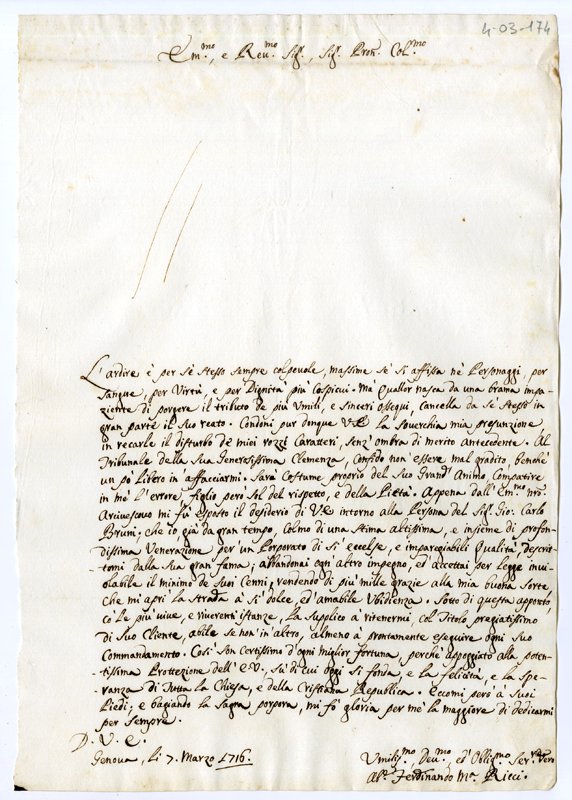 4-03-174
Em.mo, e Reu.mo Sig., Sig. Pron. Col.mo
L'ardire è per sè stesso sempre colpeuole, massime sè si affissa nè Personaggi, per
Sangue, per Virtù, e per Dignità più Cospicui. Mà quallor nasca da una brama impa-
ziente di porgere il tributo de più Umili, e sinceri ossequi, cancella da sè stesso in
gran parte il suo reato. Condoni pur donque V.E. la souerchia mia prosunzione,
in recarle il disturbo dè miei rozzi Caratteri, senz'ombra di merito antecedente. Al
Tribunale della sua Generosissima Clemenza, confido non essere mal gradito, benchè
un pò libero in affacciarmi. Sarà Costume proprio del suo Grand'Animo, Compatire
in mè l'errore, figlio però sol del rispetto, e della Pietà. Appena dall'Em.mo nro
Arciuescouo mi fù esposto il desiderio di V.E. intorno alla Persona del Sig. Gio: Carlo
Bruni, che io già da gran tempo, Colmo di una Stima Altissima, e insieme di profon-
dissima Venerazione per un Porporato di sì eccelse, ed impareggiabili Qualità descrit-
tomi dalla sua gran fama, abbandonai ogni altro impegno, ed accettai per legge inui-
olabile il minimo de suoi Cenni, rendendo di più mille grazie alla mia buona Sorte,
che mi aprì la Strada à sì dolce, ed amabile Ubidienza. Sotto di questa apponto,
cò le più viue, e riuerenti istanze, la supplico à ritenermi, col Titolo pregiatissimo
di suo Cliente, abile se non'in altro, almeno à prontamente eseguire ogni suo
Commandamento. Così son certissimo d'ogni miglior fortuna, perchè appoggiato alla poten-
tissima Protezione dell'E.V., sù di cui oggi si fonda, e la felicità, e la Spe-
ranza di Tutta la Chiesa, e della Cristiana Republica. Eccomi però à suoi
Piedi; e bagiando la Sagra porpora, mi fò gloria per mè la maggiore di dedicarmi
per sempre
D. V. E.
Genoua, li 7. Marzo 1716.
Umiliss.mo, Deu.mo, ed Oblig.mo Ser.re Vero
Ab.e Ferdinando M.a Ricci.